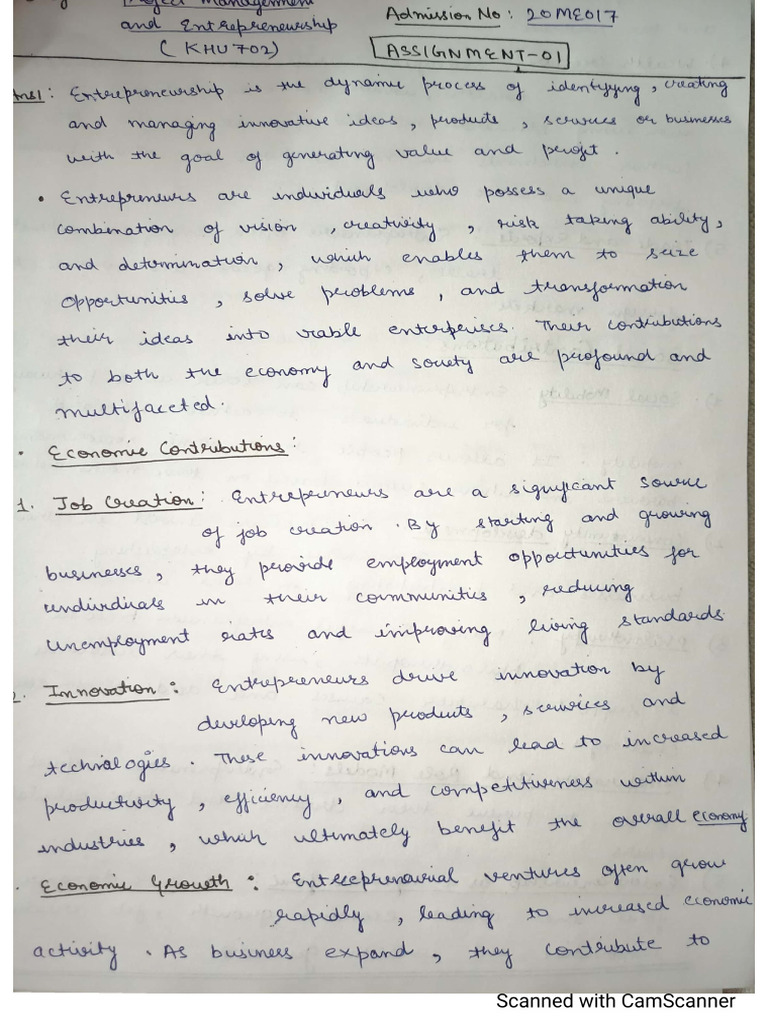 Project Management
and Entrepreneurship
(KHU702)
Admission No: 20ME017
ASSIGNMENT-01
Ans1: Entrepreneurship is the dynamic process of identifying, creating
and managing innovative ideas, products, services or businesses
with the goal of generating value and profit.
• Entrepreneurs are individuals who possess a unique
combination of vision, creativity, risk taking ability,
and determination, which enables them to seize
opportunities, solve problems, and transformation
their ideas into viable enterprises. Their contributions
to both the economy and society are profound and
multifaceted.
• Economic Contributions:
1. Job Creation: Entrepreneurs are a significant source
of job creation. By starting and growing
businesses, they provide employment opportunities for
individuals in their communities, reducing
unemployment rates and improving living standards.
2. Innovation: Entrepreneurs drive innovation by
developing new products, services and
technologies. These innovations can lead to increased
productivity, efficiency, and competitiveness within
industries, which ultimately benefit the overall economy
. Economic Growth: Entrepreneurial ventures often grow
rapidly, leading to increased economic
activity. As business expand, they contribute to
Scanned with CamScanner